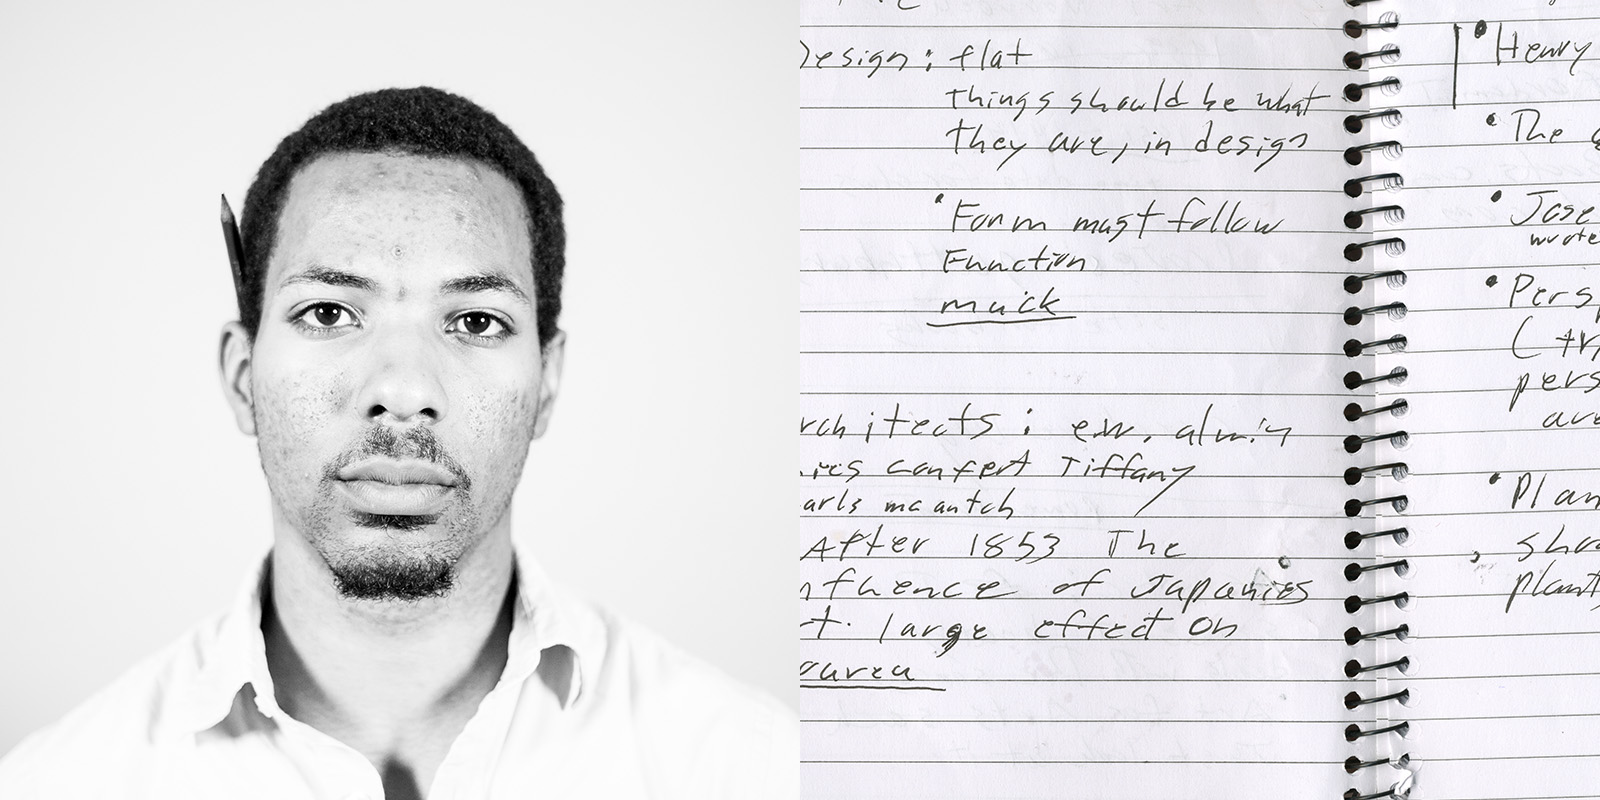 Design : flat
things should be what
they are, in design
• Form must follow
Function
architects : e.w.
confert Tiffany
After 1853 The
influence of Japanies
large effect on
• Henry
• The
• Jose
wrote
• Pers
pers
are
• Plan
sho
plant